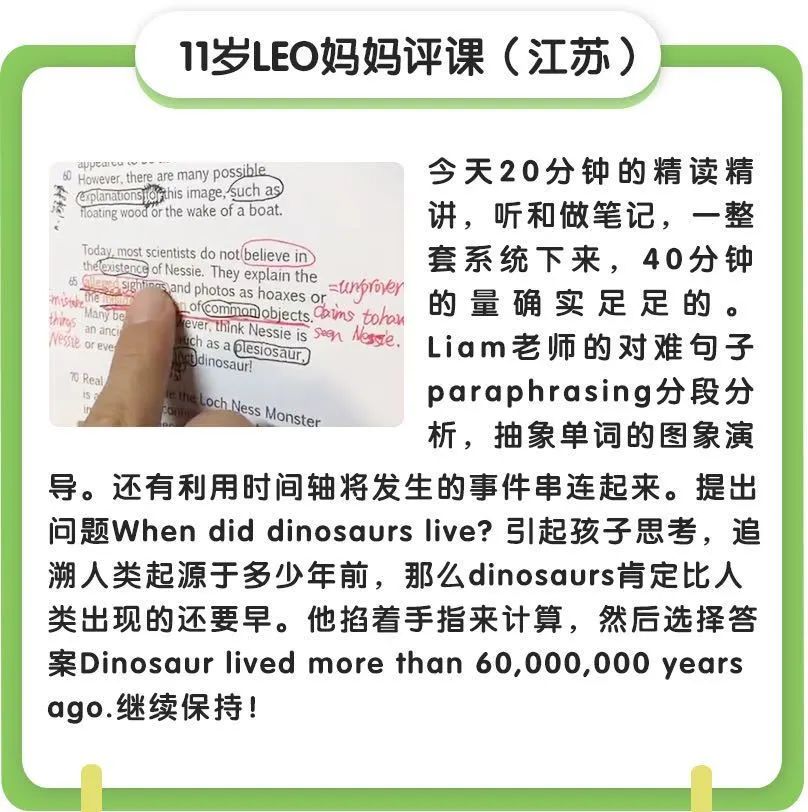 11岁LEO妈妈评课（江苏）
60
However, there are many possible
explanations for this image, such as
floating wood or the wake of a boat.
Today, most scientists do not believe in
the existence of Nessie. They explain the
65 alleged sightings and photos as hoaxes or
the of common objects.
Many think Nessie is
an anci
or eve such as a plesiosaur,
dinosaur!
70 Real
the Loch Ness Monster
=unproven
claims to have
seen Nessie.
things
Nessie
今天20分钟的精读精
讲，听和做笔记，一整
套系统下来，40分钟
的量确实足足的。
Liam老师的对难句子
paraphrasing分段分
析，抽象单词的图象演
导。还有利用时间轴将发生的事件串连起来。提出
问题When did dinosaurs live? 引起孩子思考，追
溯人类起源于多少年前，那么dinosaurs肯定比人
类出现的还要早。他掐着手指来计算，然后选择答
案Dinosaur lived more than 60,000,000 years
ago.继续保持！